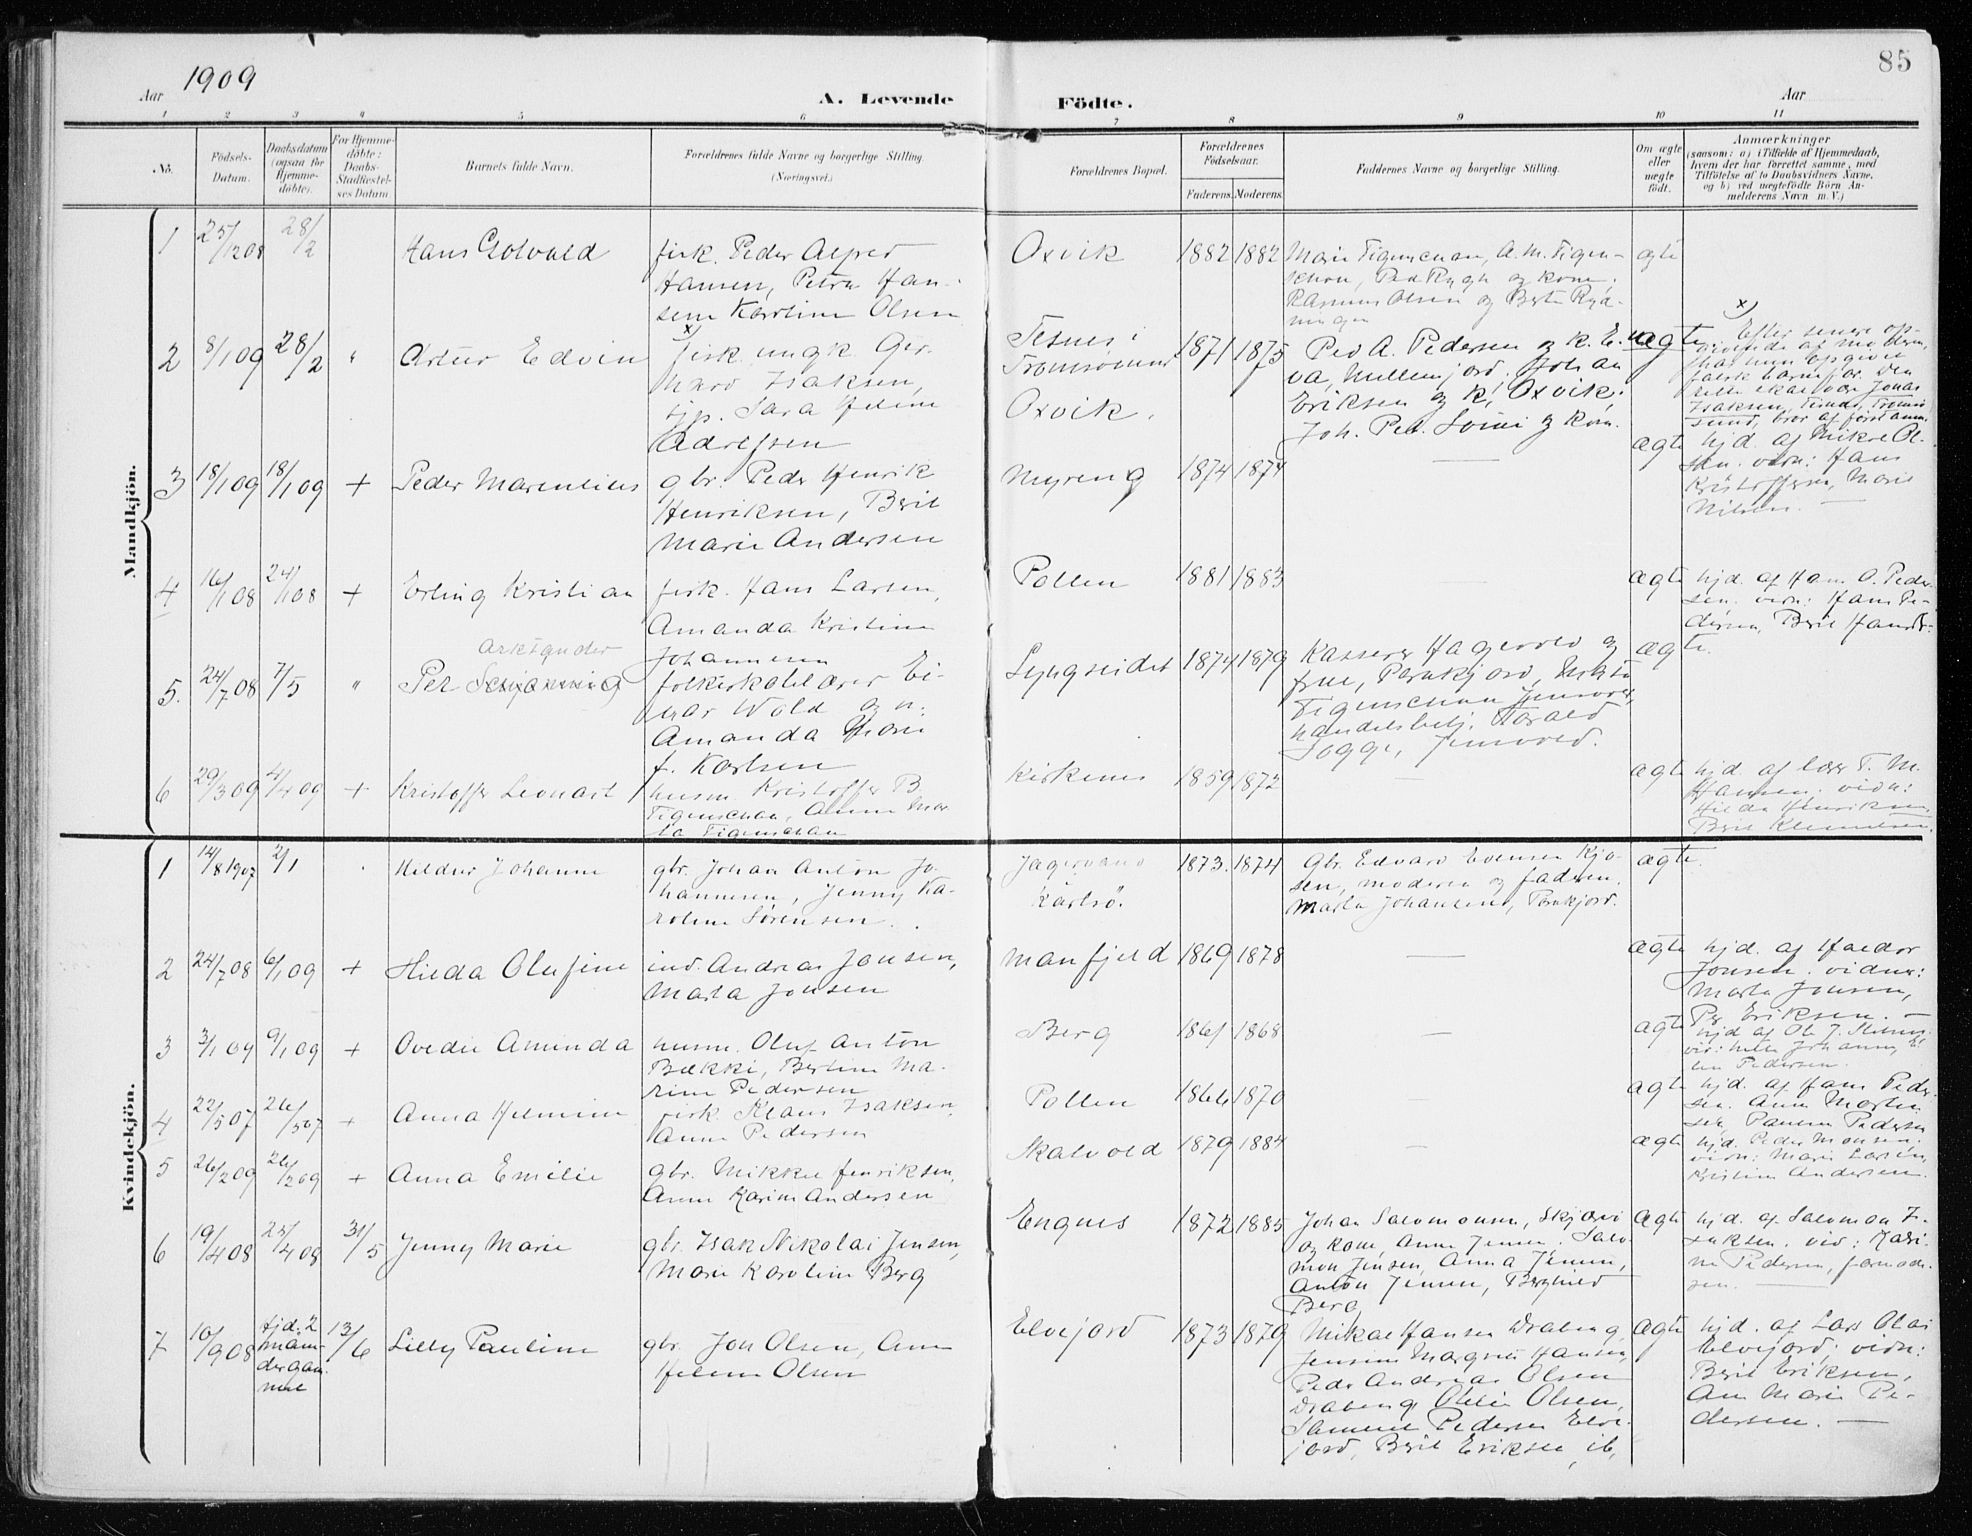 85
Aar 1909
A. Levende Födte.
Aar
1 2 3 4 5 6 7 8 9 10 11
No.
Födsels-
Datum.
Daabsdatum
(ogsaa for
Hjemme-
döbte).
For Hjemme-
döbte:
Daabs-
Stadfæstel-
ses Datum
Barnets fulde Navn.
Forældrenes fulde Navne og borgerlige Stilling.
(Næringsvei.)
Forældrenes Bopæl.
Forældrenes
Födselsaar.
Faderens. Moderens.
Faddernes Navne og borgerlige Stilling.
Om ægte
eller
uægte
födt.
Anmærkninger
(saasom: a) i Tilfælde af Hjemmedaab,
hvem der har forrettet samme, med
Tilföielse af to Daabsvidners Navne,
og b) ved uægtefödte Börn An-
melderens Navn m. V.)
Mandkjön.
1 25/12 08 28/2
Hans Gotvald
fisk. Peder Alfred
Hansen, Petra Han-
sine Karoline Olsen
Oxvik
1882 1882
Rasmus Olsen og Berte Ryd-
ningen
ægte
2 8/1 09 28/2 "
Artur Edvin
x)
fisk ungk. Ger-
hard Isaksen,
tjp. Sara Helene
Adrifsen
Tisnes i
Tromsösund
Oxvik.
1871 1875
Ped A. Pedersen og k. E-
va, Mellemjord. Johan
Eriksen og k, Oxvik;
Joh. Ped. Soini og kone.
uægte
x)
Efter senere op-
givende af moderen
har hun opgivet
falsk barnefar. Den
rette skal være Jonas
Isaksen, Tisnes, Tromsö
sund, bror af förstanm.
3 18/1 09 18/1 09 +
Peder Marentius
gbr. Peder Henrik
Henriksen, Berit
Marie Andersen
Myreng
1874 1874
—
ægte
hjd. af Mikal Ol-
sen. vidn: Hans
Kristoffersen, Marit
Nilsen. —
4 16/1 08 24/1 08 +
Erling Kristian
fisk. Hans Larsen,
Amanda Kristine
Johannesen
Pollen
1881 1883
—
ægte
hjd. af Hans O. Peder-
sen. vidn: Hans Pe-
dersen, Berit Hansdt:
5. 24/7 08 7/5 "
Per
folkeskolelærer Ei-
nar Wold og h:
Amanda Marie
f. Karlsen
Lyngseidet
1874 1879
Kasserer Hagerold og
frue, Pernkjord,
handelsbetj. Harald
Sogge, Jensvold.
ægte.
6 29/3 09 4/4 09 +
Kristoffer Leonart
husm Kristoffer B
Tigenschou, Anne Mar-
ta Tigenschou
Kirkenes
1859 1872
—
ægte
hjd. af lærer T. M.
Hansen. vidn:
Hilda Henriksen,
Berit Klemetsen.
Kvindekjön.
1 14/8 1907 2/1
Hildur Johanne
gbr. Johan Anton Jo-
hannesen, Jenny Ka-
roline Sørensen.
Jægervand
Karlsö.
1873. 1874
Gbr. Edvard Evensen Kjo-
sen, moderen og faderen.
Marta Johansen, Pernkjord.
ægte.
2 24/7 08 6/1 09 +
Hilda Olufine
ind. Andreas Jonsen,
Marta Jonsen
Manfjeld
1869 1878
—
ægte
hjd. af Haldor
Jonsen. vidner:
Marta Jonsen,
Per Eriksen. —
3 3/1 09 9/1 09 +
Ovedie Aminda
husm. Oluf Anton
Bækki, Bertine Ma-
rine Pedersen
Berg
1861 1868
—
ægte
hjd af Ole J.
vid: Johanne, E-
len Pedersen.
4 22/5 07 26/5 07 +
Anna Helmine
fisk. Klaus Isaksen
Anne Pedersen
Pollen
1866 1870
—
ægte
hjd. af Hans Peder-
sen. Anne Marten-
sen, Pedersen
5 26/2 09 26/2 09 +
Anna Emilie
gbr. Mikkel Henriksen,
Anne Karine Andersen
Skalvold
1879 1884
—
ægte
hjd. Peder Monsen.
vidn: Marie Larsen,
Kristine Andersen.
6 19/4 08 25/4 08 31/5
Jenny Marie
gbr. Isak Nikolai Jensen,
Marie Karoline Berg
Engnes
1872 1885
Johan Salomonsen, Skjærvö
og kone, Anne Jensen. Salo-
mon Jensen, Anna Jensen,
Anton Jensen, Berghild
Berg
ægte
hjd. af Salomon I-
saksen. vid: Kari-
ne Pedersen,
sen. —
7 10/9 08 hjd. 2
maan-
der gam-
mel 13/6
Lilly Pauline
gbr. Jon Olsen, Ane
Helene Olsen
Elvejord
1873 1879
Mikal Hansen Drabeng,
Jensine Margrete Hansen,
Peder Andreas Olsen
Drabeng, Otelie Olsen,
Samuel Pedersen Elve-
jord, Berit Eriksen, ib,
ægte
hjd. af Lars Olai
Elvejord; vidn:
Berit Eriksen,
Ane Marie Pe-
dersen. —